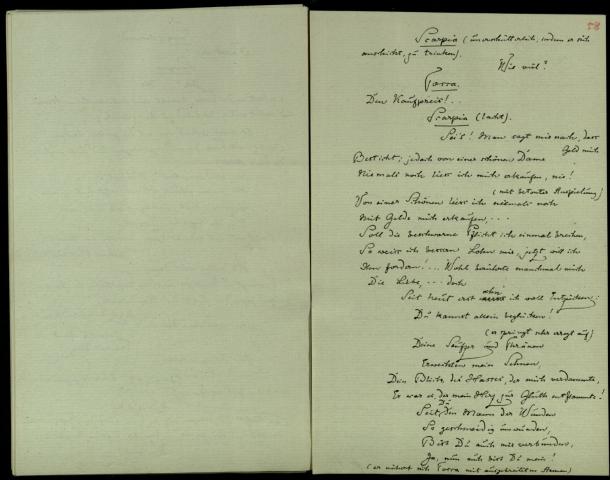 58
Scarpia (unerschütterlich, indem er sich
anschickt, zu trinken).
Wie viel?
Tosca.
Den Kaufpreis!..
Scarpia (lacht).
Sei's! Man sagt mir nach, dass
Geld mich
Besticht; jedoch von einer schönen Dame
Niemals noch liess ich mich erkaufen, nie!
(mit betonter Anspielung)
Von einer Schönen liess ich niemals noch
Mit Gelde mich erkaufen,...
Soll die beschworne Pflicht ich einmal brechen,
So weiss ich bessern Lohn mir, jetzt will ich
Ihn fordern!... Wohl manchmal mich
Die Liebe,... doch
Seit heut' erst ich voll Entzücken:
Du kannst allein beglücken!
(er springt sehr erregt auf)
Deine Seufzer und Thränen
Erweckten mein Sehnen,
Dein Blick des Hasses, der mich verdammte,
Er war es, der mein Herz zur Gluth entflammte!
Seit Du den Mann der Wunden
So geschmeidig umwunden,
Bist Du auch mir verbunden,
Ja, nun auch bist Du mein!
(er nähert sich Tosca mit ausgebreiteten Armen)